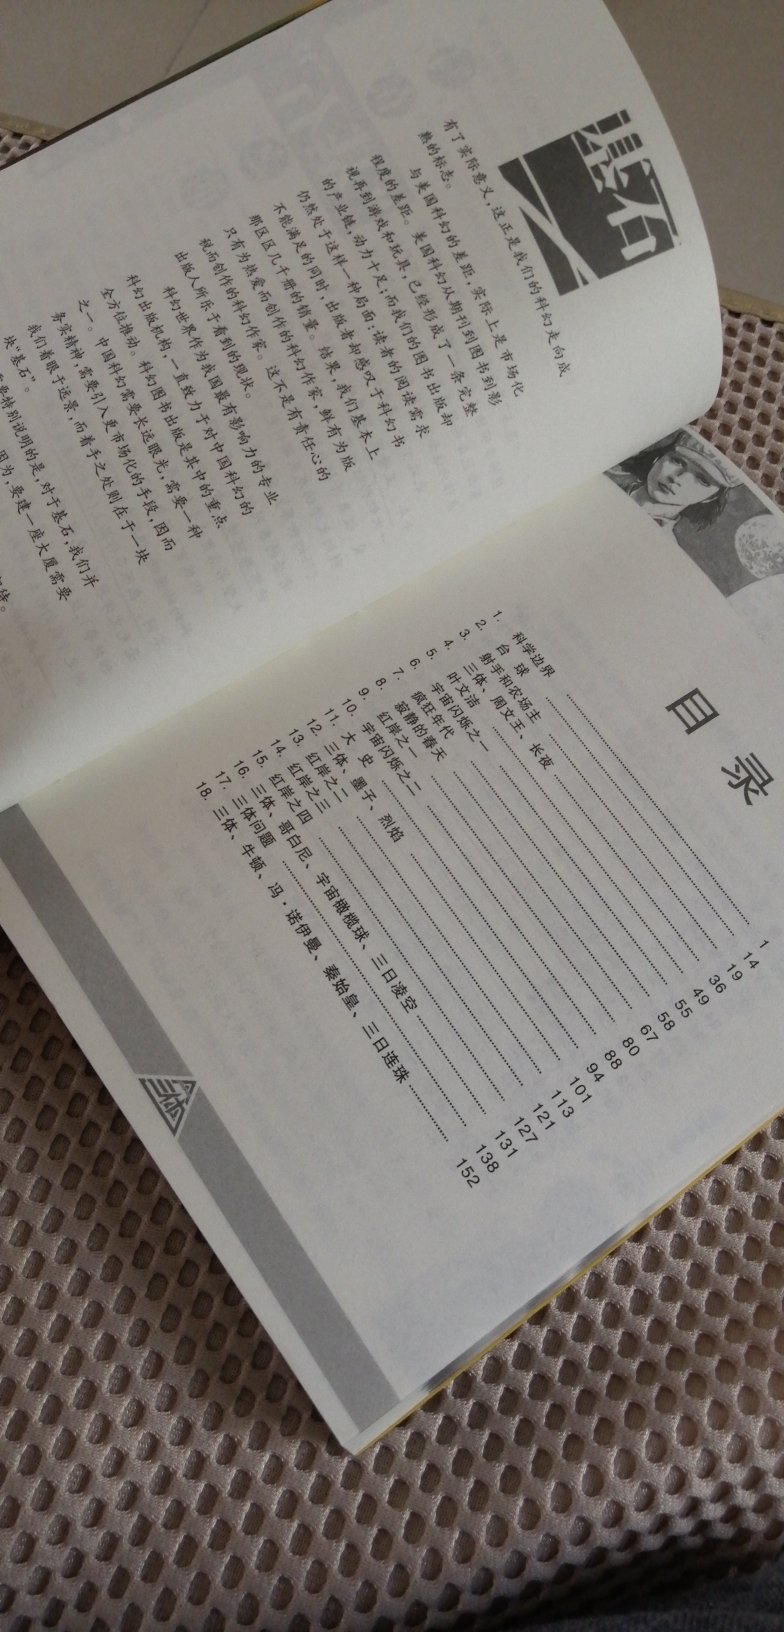 基石
有了实际意义，这正是我们的科幻走向成
熟的标志。
与美国科幻的差距，实际上是市场化
程度的差距。美国科幻从期刊到图书到影
视再到游戏和玩具，已经形成了一条完整
的产业链，动力十足；而我们的图书出版却
仍然处于这样一种局面：读者的阅读需求
不能满足的同时，出版者却感叹于科幻书
那区区几千册的销量。结果，我们基本上
只有为热爱而创作的科幻作家，鲜有为版
税而创作的科幻作家。这不是有责任心的
出版人所乐于看到的现状。
科幻世界作为我国最有影响力的专业
科幻出版机构，一直致力于对中国科幻的
全方位推动。科幻图书出版是其中的重点
之一。中国科幻需要长远眼光，需要一种
务实精神，需要引入更市场化的手段，因而
我们着眼于远景，而着手之处则在于一块
块“基石”。
要特别说明的是，对于基石，我们并
因为，要建一座大厦需要
目录
1. 科学边界 1
2. 台 球 14
3. 射手和农场主 19
4. 三体、周文王、长夜 36
5. 叶文洁 49
6. 宇宙闪烁之一 55
7. 疯狂年代 58
8. 寂静的春天 67
9. 红岸之一 80
10. 宇宙闪烁之二 88
11. 大 史 94
12. 三体、墨子、烈焰 101
13. 红岸之二 113
14. 红岸之三 121
15. 红岸之四 127
16. 三体、哥白尼、宇宙橄榄球、三日凌空 131
17. 三体问题 138
18. 三体、牛顿、冯·诺伊曼、秦始皇、三日连珠 152
三体